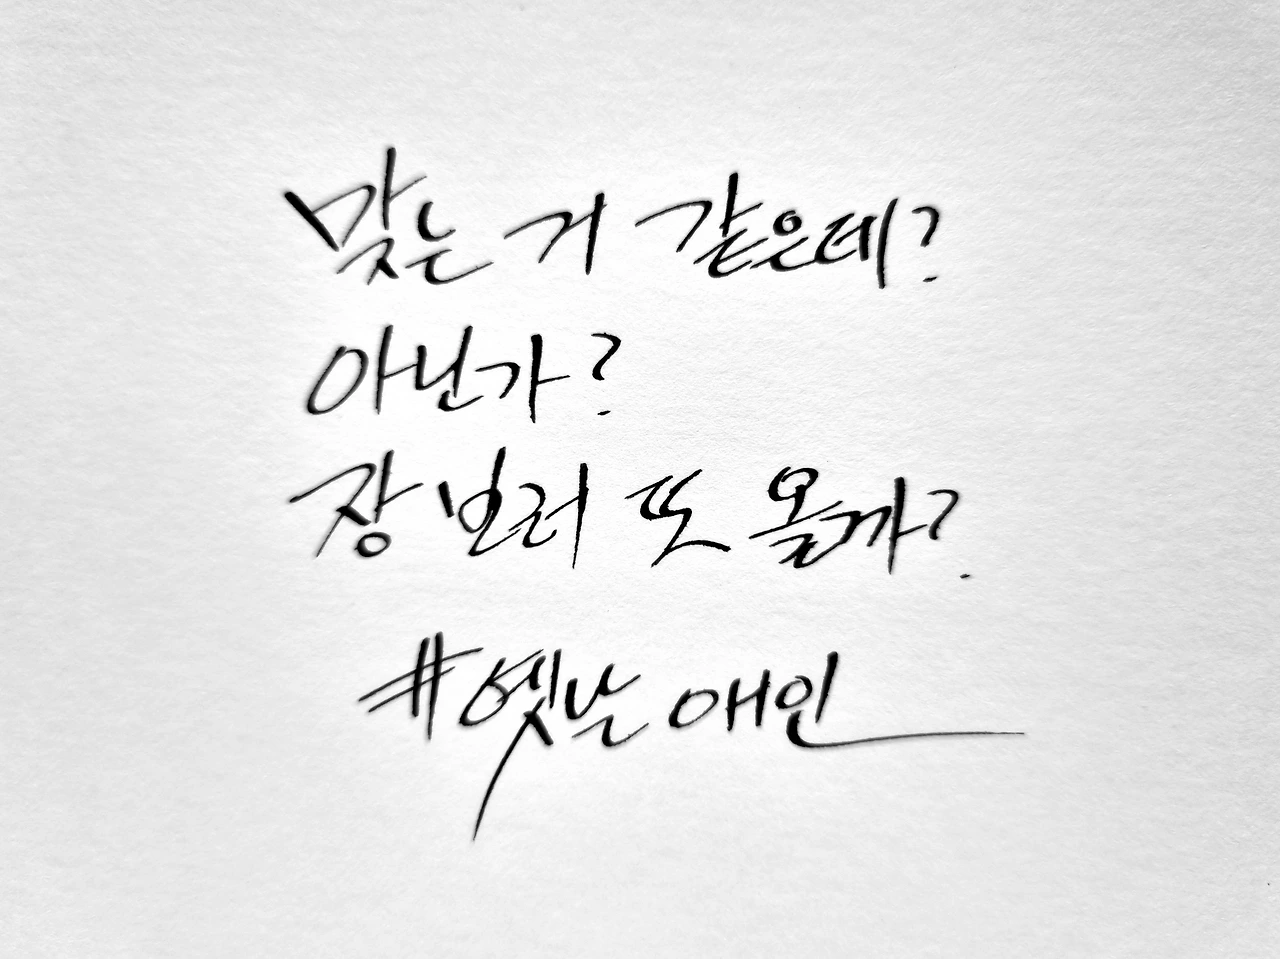 맞는 거 같은데?
아닌가?
장 보러 또 올까?
#옛날 애인